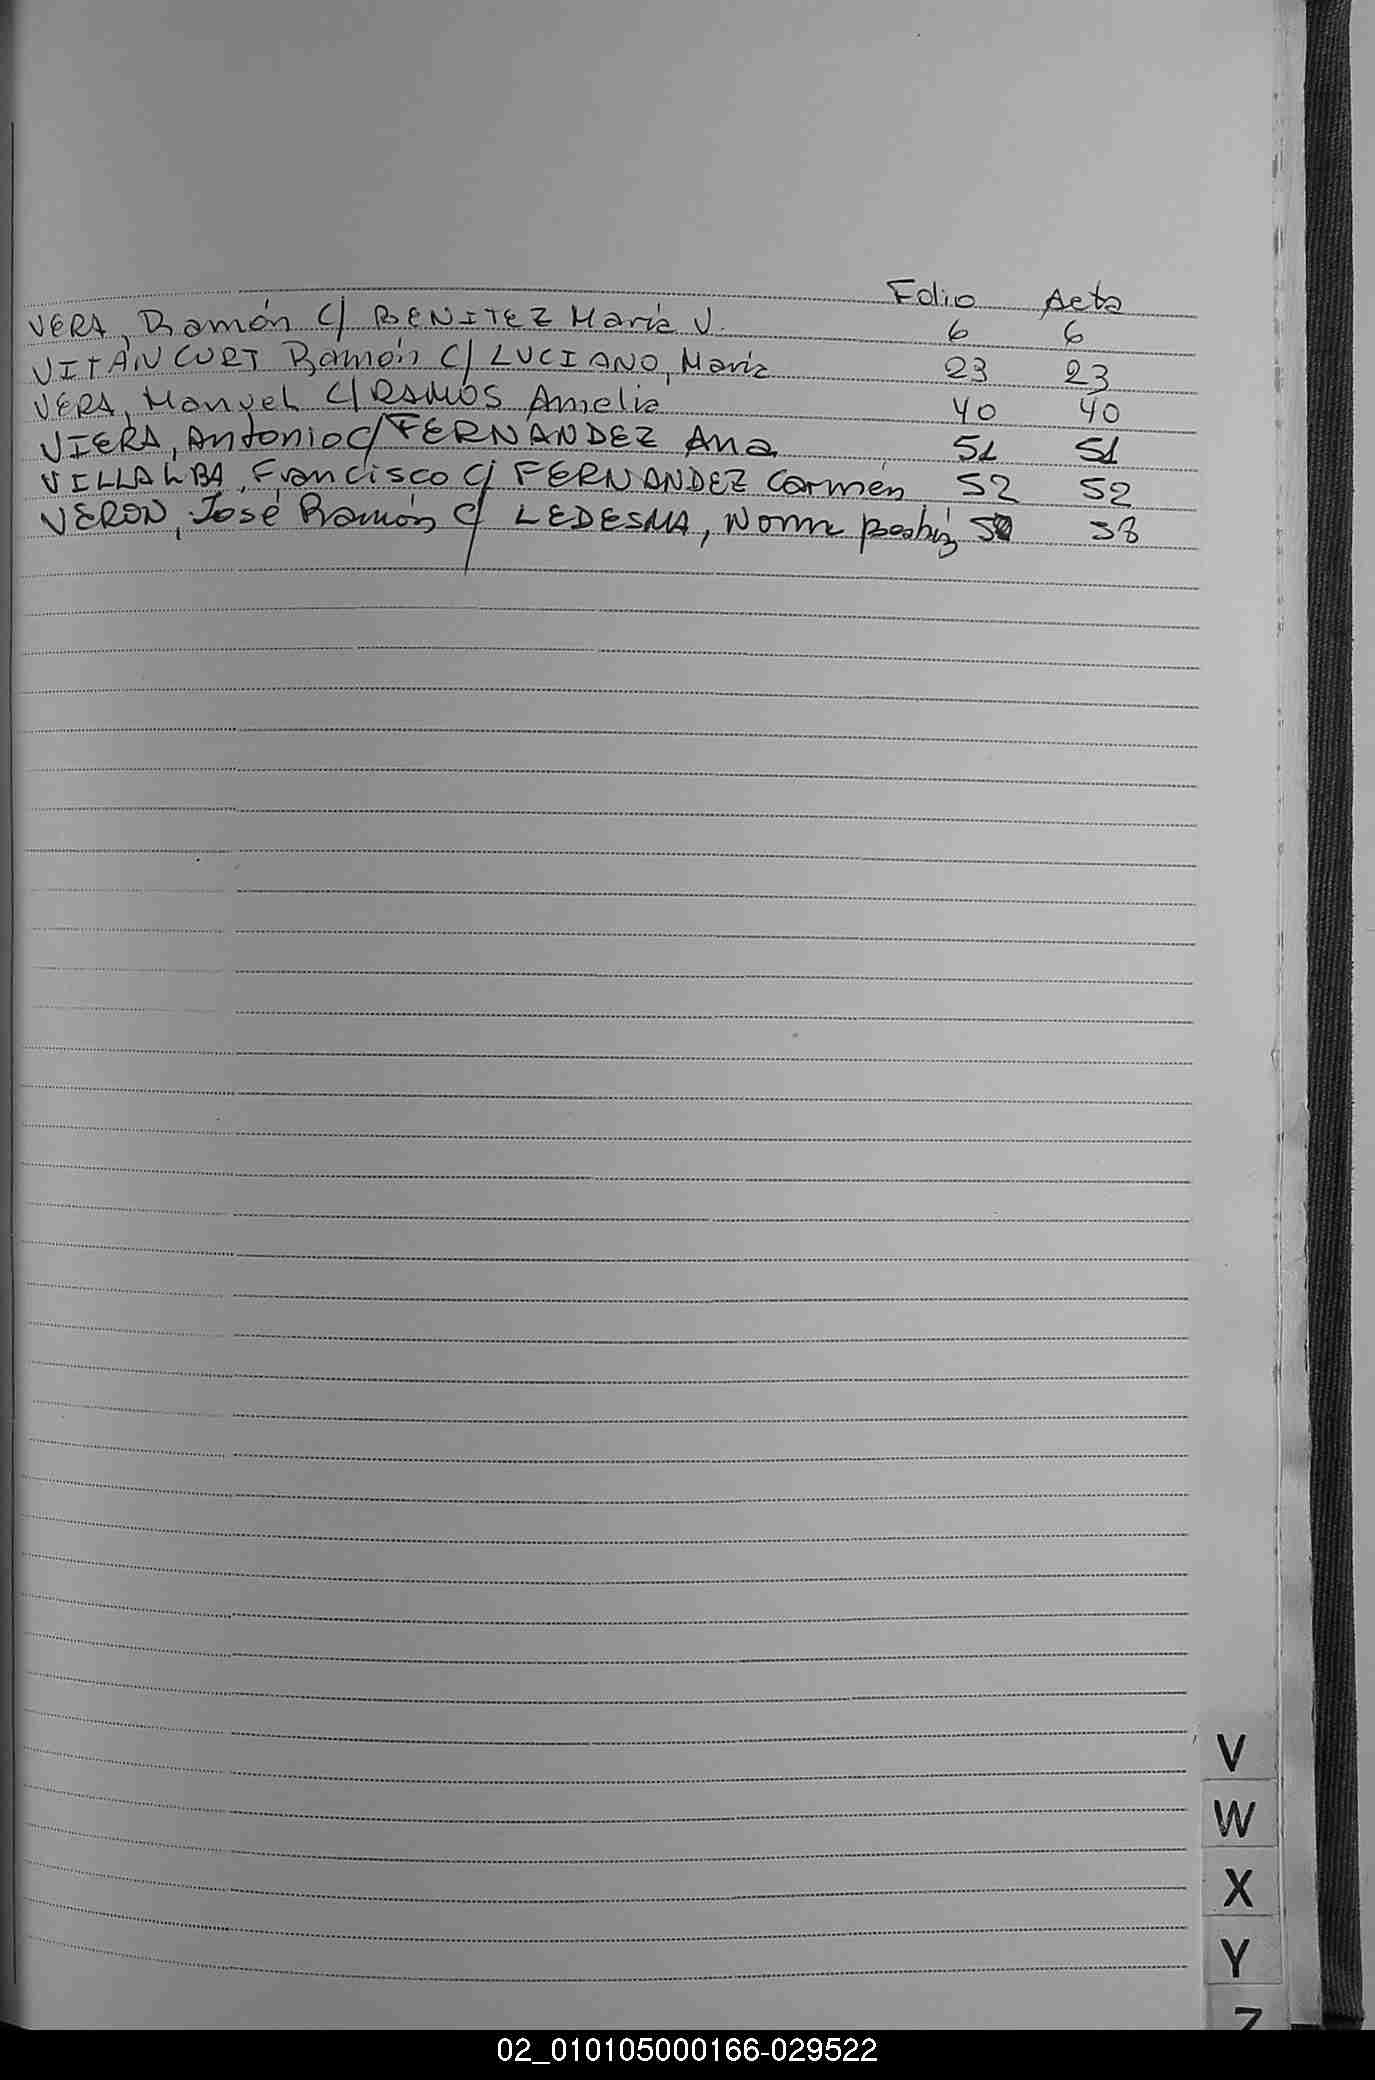 Folio Acta
VERA, Ramón C/ BENITEZ María V. 6 6
VITANCURT Ramón C/ LUCIANO, María 23 23
VERA, Manuel C/ RAMOS Amelia 40 40
VIERA, Antonio C/ FERNANDEZ Ana 51 51
VILLALBA, Francisco C/ FERNANDEZ Carmén 52 52
VERON, José Ramón C/ LEDESMA, Norma Beatriz 58
V
W
X
Y
Z
02_010105000166-029522